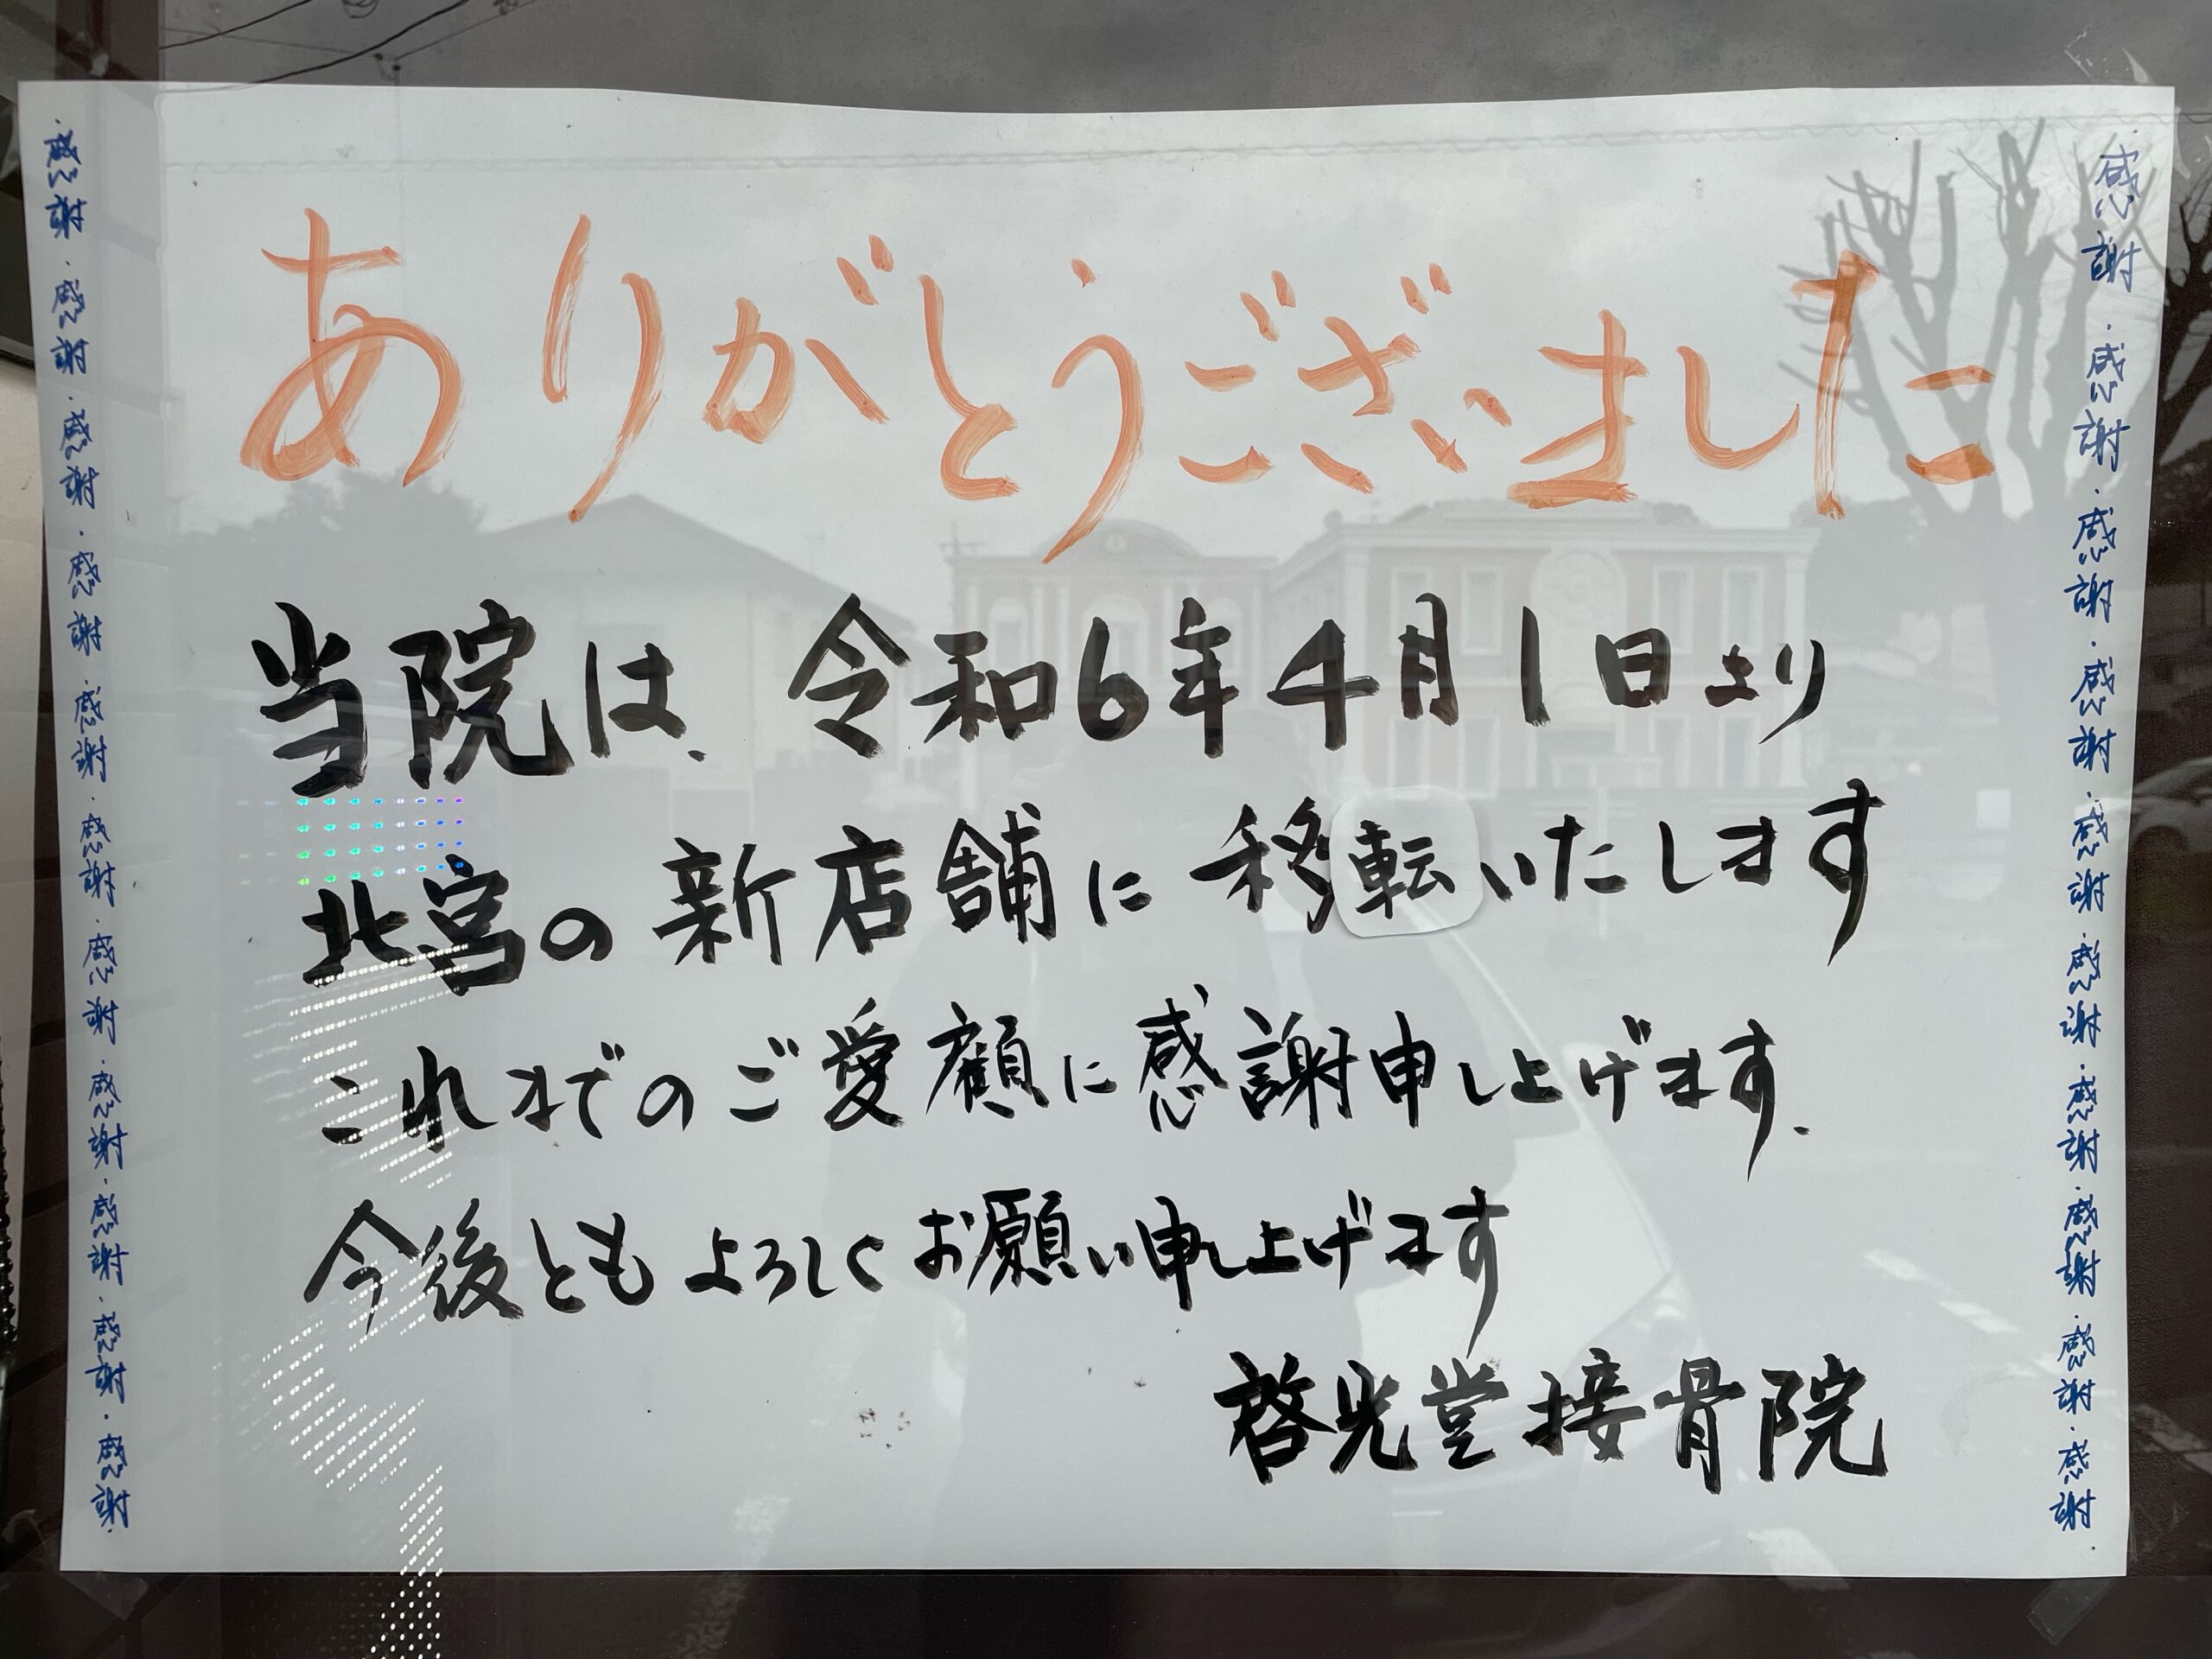 ありがとうございました
当院は、令和6年4月1日より
北宮の新店舗に移転いたします
これまでのご愛顧に感謝申し上げます.
今後ともよろしくお願い申し上げます
啓光堂接骨院
・感謝・感謝・感謝・感謝・感謝・感謝・感謝・感謝・感謝・感謝・感謝・
・感謝・感謝・感謝・感謝・感謝・感謝・感謝・感謝・感謝・感謝・